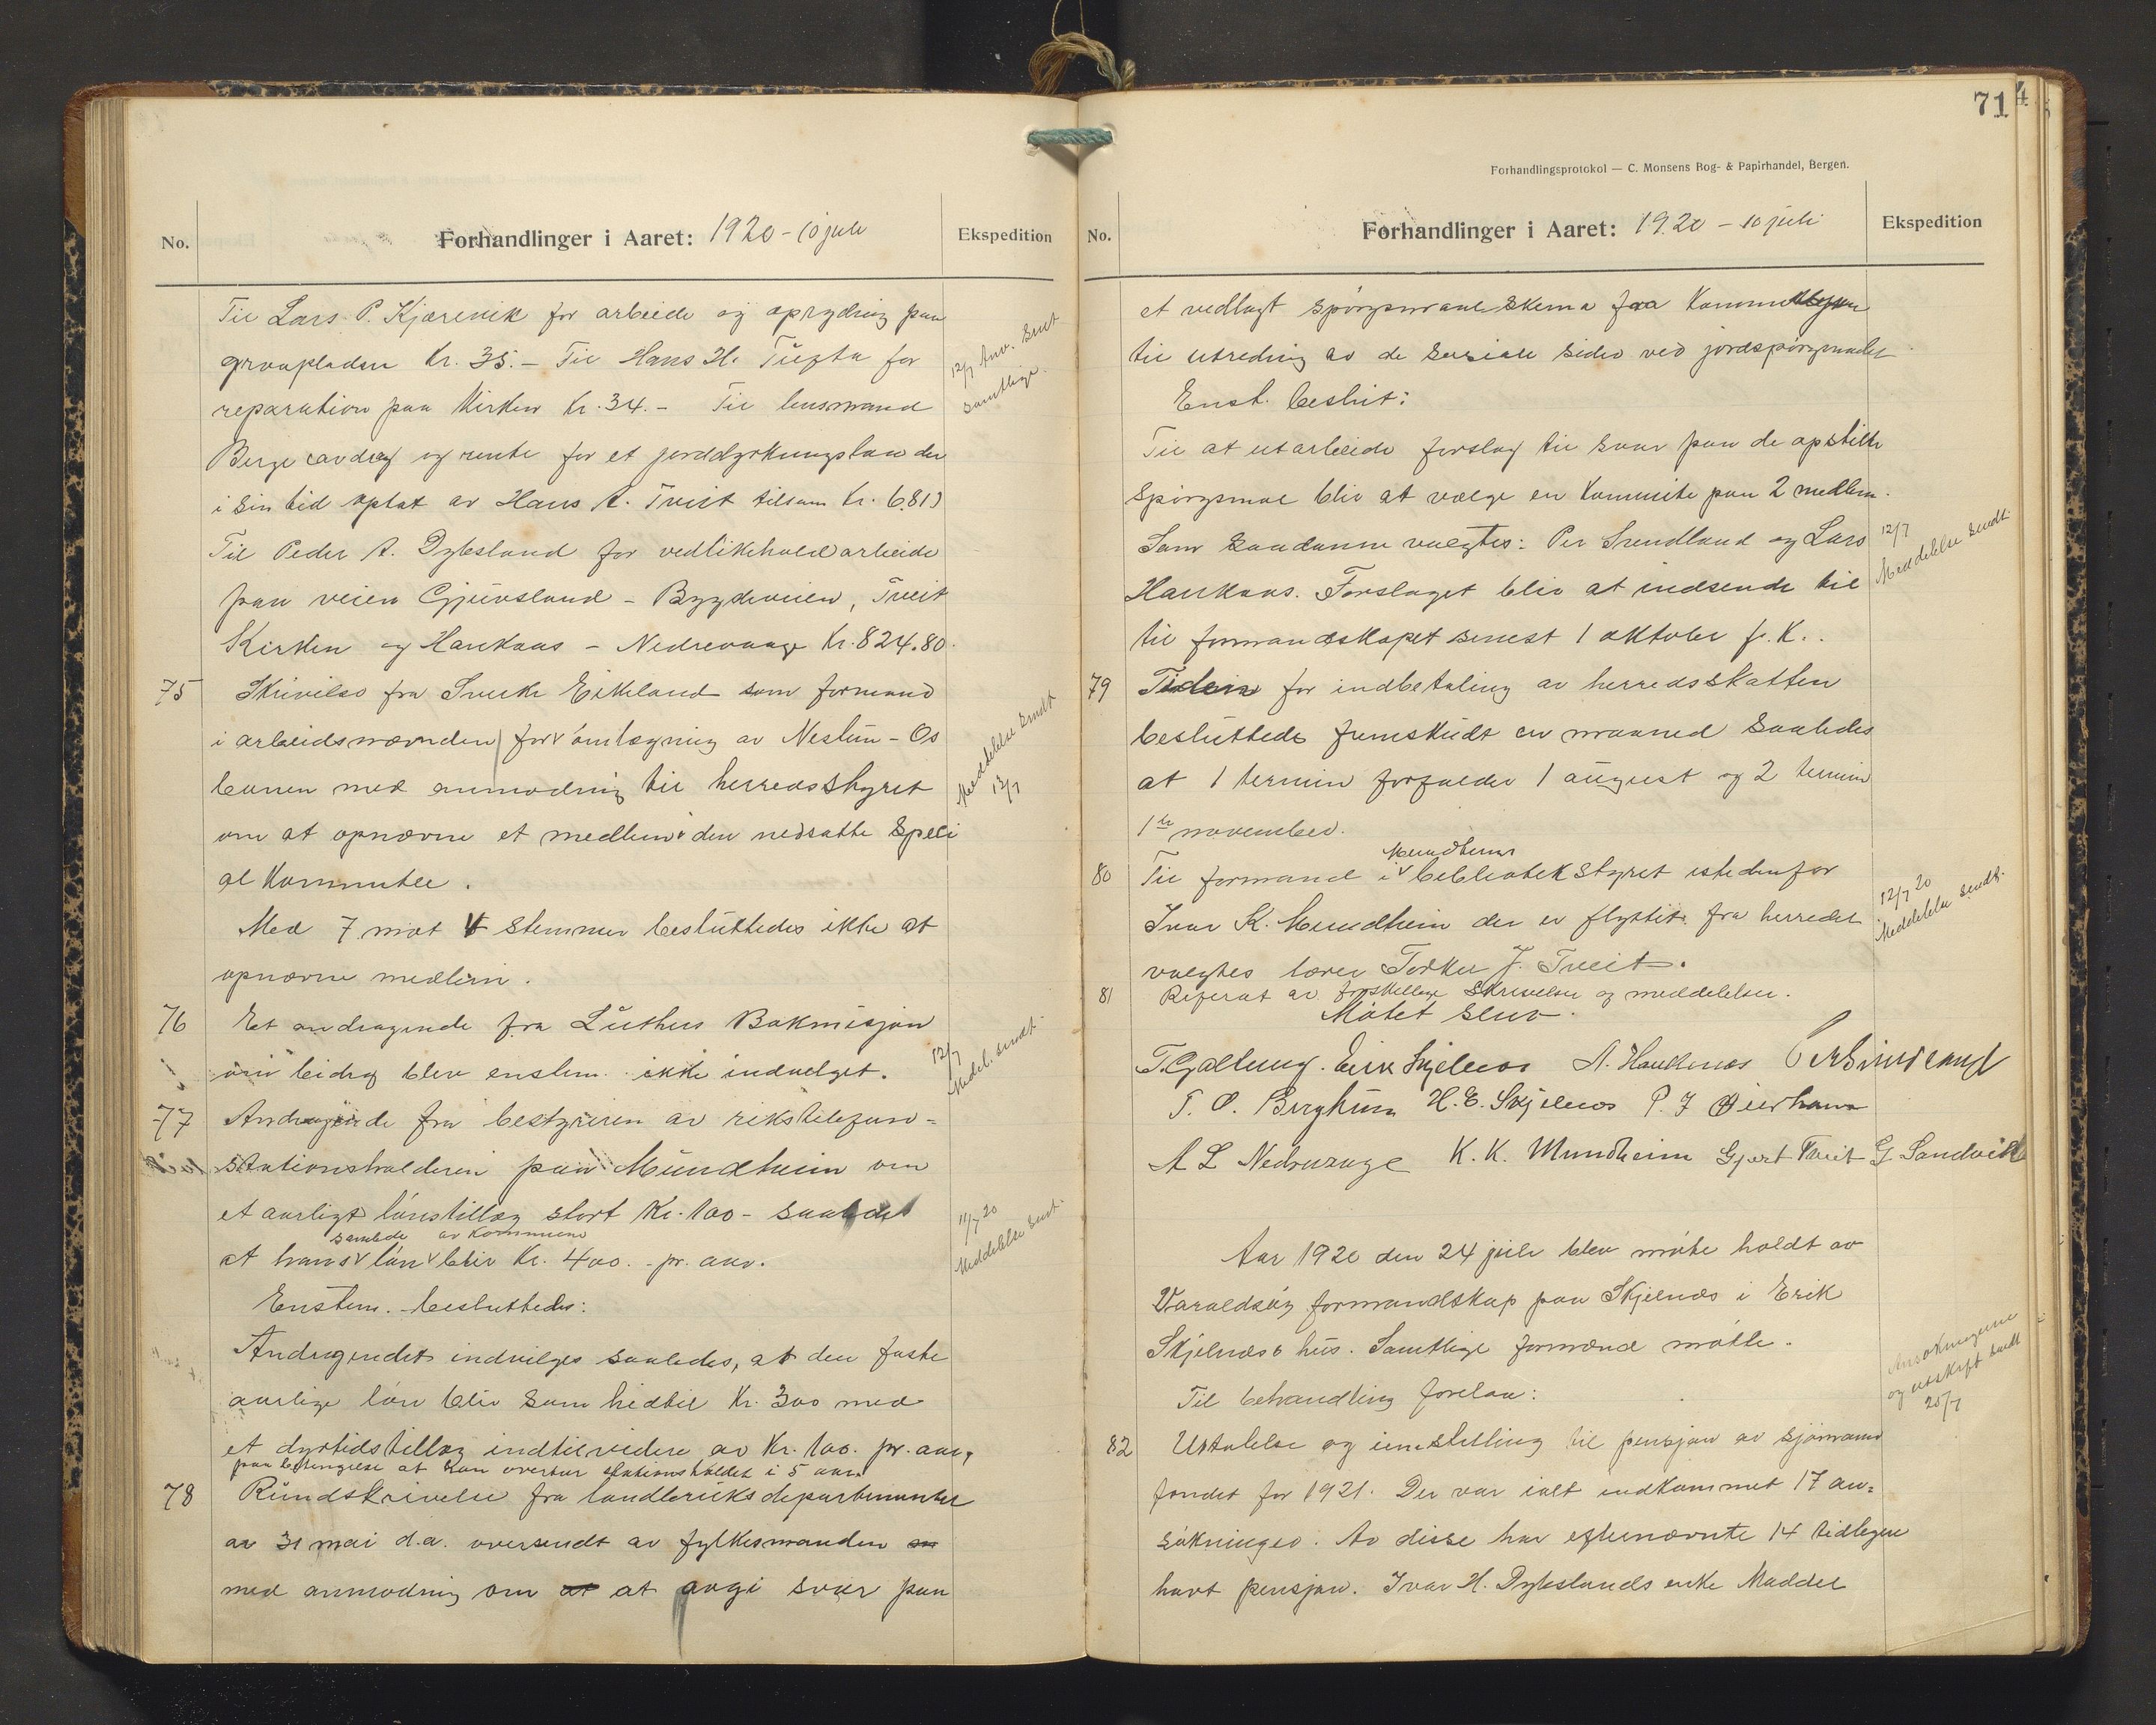 No.
Forhandlinger i Aaret: 1920 - 10 juli
Ekspedition
Til Lars P. Kjærevik for arbeide og oprydning paa
gravpladsen Kr. 35.- Til Hans H. Tufta for
reparation paa Kirken Kr. 34.- Til lensmand
12/7 Anv. sendt
samtlige.
Berge avdrag og rente for et jorddyrkningslaan der
i sin tid optat av Hans A. Tveit tilsam Kr. 6.81)
Til Peder A. Dyksland for vedlikeholdarbeide
paa veien Gjuvsland - Bygdeveien, Tveit
Kirken og Haukaas - Nedrevaage Kr. 824.80.
75 Skrivelse fra Sverke Eikeland som formand
i arbeidsnævnden for omlægning av Nestun - Os
banen med anmodning til herredsstyret
Meddelelse sendt
13/7
om at opnævne et medlem i den nedsatte speci
al Kommitee.
Med 7 mot 4 stemmer besluttedes ikke at
opnævne medlem.
76 Et andragende fra Luthers Bokmisjon
om bidrag blev enstem. ikke indvilget.
12/7
Medel. sendt.
77 Andragende fra bestyreren av rikstelefon=
stationsholderen paa Mundheim om
et aarligt lönstillæg stort Kr. 100 - saaledes
samlede av Kommunen
at hans lön blir Kr. 400. - pr. aar.
11/7 20
Meddelelse sent.
Enstem. besluttedes:
Andragendet indvilges saaledes, at den faste
aarlige lön blir som hidtil Kr. 300 med
et dyrtidstillæg indtilvidere av Kr. 100. pr. aar,
paa betingelse at han overtar stationsholdet i 5 aar.
78 Rundskrivelse fra landbruksdepartementet
av 31 mai d.a. oversendt av fylkesmanden
med anmodning om at at avgi svar paa
71
Forhandlingsprotokol — C. Monsens Bog- & Papirhandel, Bergen.
No.
Forhandlinger i Aaret: 1920 - 10 juli
Ekspedition
et vedlagt spörgsmaalskema fra
til utredning av de sociale sider ved jordspörgsmaalet
Enst. beslut:
Til at utarbeide forslag til svar paa de opstilte
spörgsmaal blir at vælge en Kommite paa 2 medlem.
Som saadanne valgtes: Per Svendland og Lars
12/7
Meddelelse sendt.
Haukaas. Forslaget blir at indsende til
til formandskapet senest 1 oktober f. K..
79 Tiden for indbetaling av herredsskatten
besluttedes fremskudt en maaned saaledes
at 1 termin forfalder 1 august og 2 termin
1ste november.
Mundheim
80 Til formand i bibliotekstyret istedenfor
Ivar K. Mundheim der er flyttet fra herredet
12/7 20
Meddelelse sendt.
valgtes lærer Torkel J. Tveit.
81 Referat av forskjellige skrivelser og meddelelser.
Mötet slut.
T. Galtung. Eirik Skjelnes A. Haukenes
T. O. Berghum H. E. Skjelnes P. J.
A L Nedrevaage K. K. Mundheim Gjert Tveit G. Sandvik
Aar 1920 den 24 juli blev möte holdt av
Varaldsöy formandskap paa Skjelnes i Erik
Skjelnes's hus. Samtlige formænd mötte.
Til behandling forelaa:
Ansökningerne
og utskrift sendt
25/7
82 Uttalelse og innstilling til pensjon av sjömans
fondet for 1921. Der var ialt indkommet 17 an=
sökninger. Av disse har efternævnte 14 tidligere
havt pensjon. Ivar H. Dykslands enke Maddel